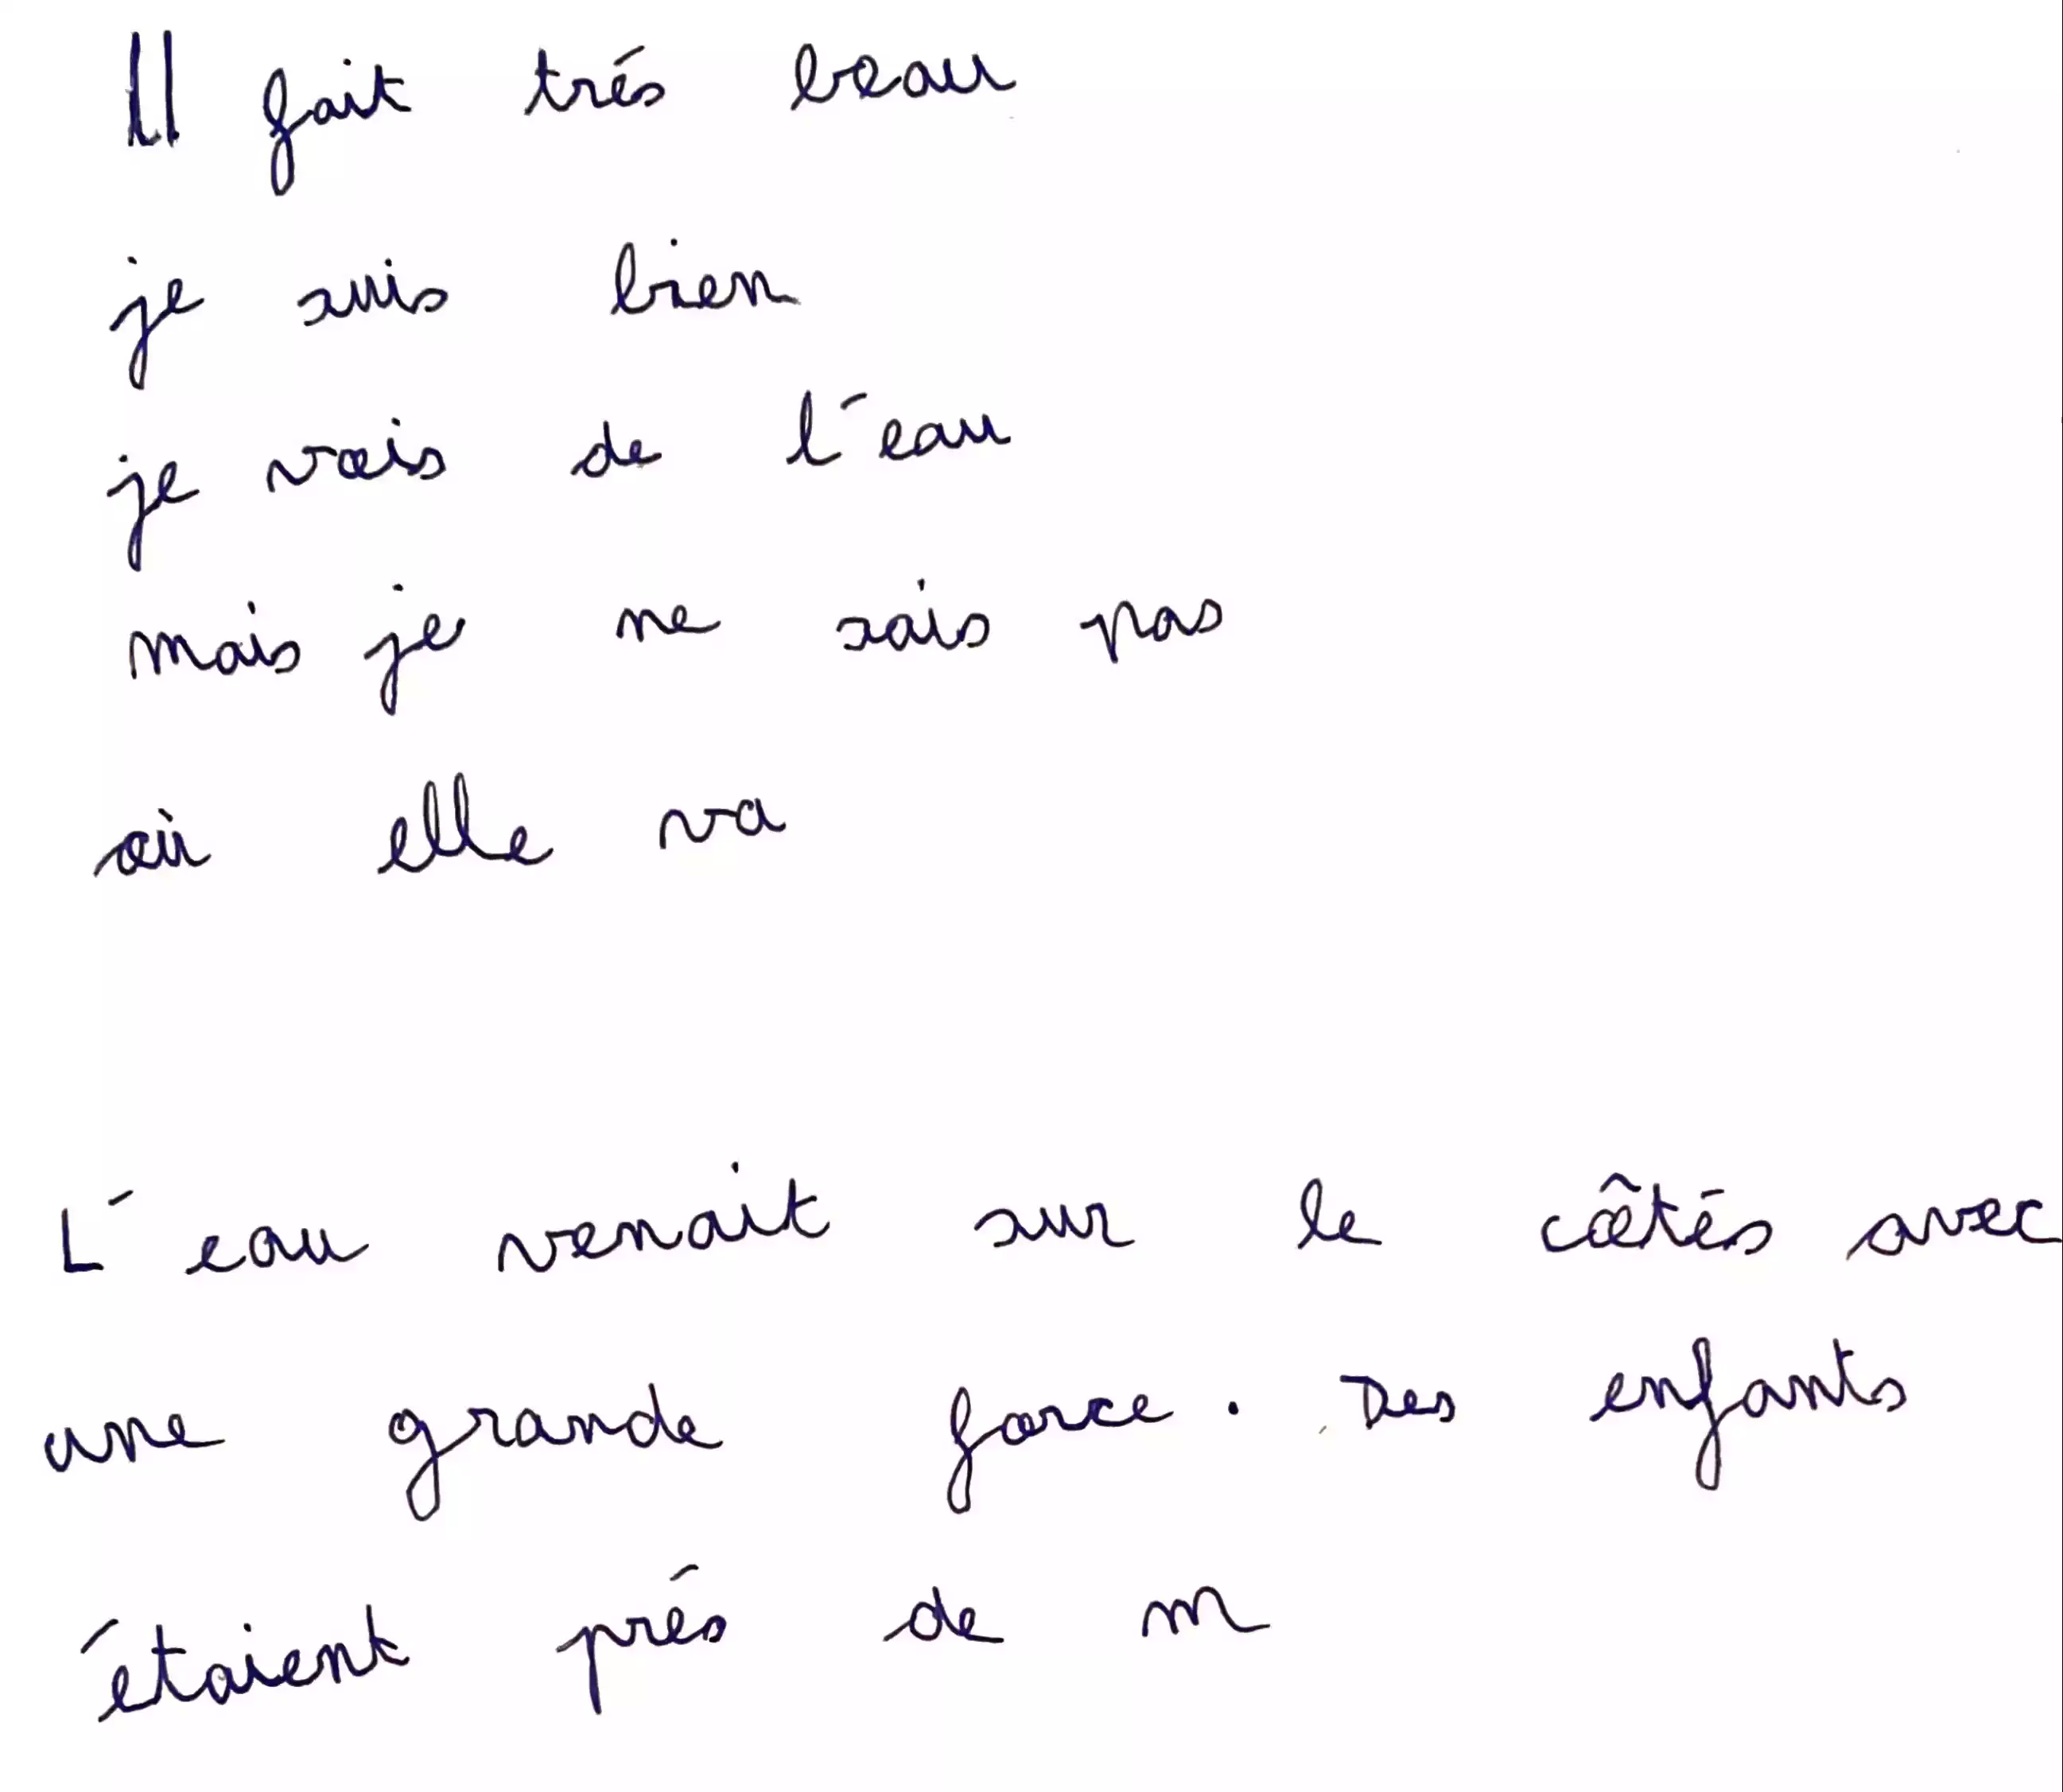 Il fait trés beau
je suis bien
je vois de l'eau
mais je ne sais pas
où elle va
L'eau venait sur le côtés avec
une grande force. Des enfants
étaient prés de m